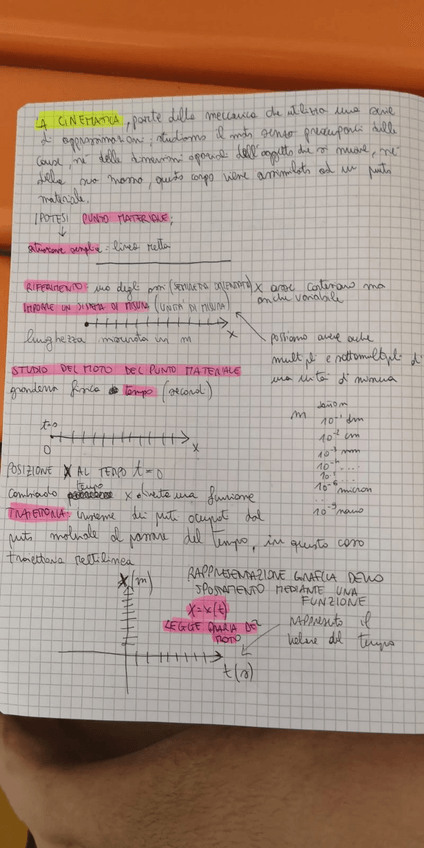 CINEMATICA, parte della meccanica che utilizza una serie
di approssimazioni, studiamo il moto senza preoccuparci delle
cause, nè delle dimensioni dell'oggetto che si muove, nè
della sua massa, questo corpo viene assimilato ad un punto
materiale.
IPOTESI PUNTO MATERIALE;
situazione semplice: linea retta
RIFERIMENTO uno degli assi (SEMIRETTA ORIENTATA) X asse cartesiano ma
anche variabile
IMPORRE UN SISTEMA DI MISURA (UNITA' DI MISURA)
X
lunghezza misurata in m
possiamo avere anche
multipli e sottomultipli di
una unità di misura
STUDIO DEL MOTO DEL PUNTO MATERIALE
grandezza fisica tempo (secondi)
m
10⁻¹ dm
10⁻² cm
10⁻³ mm
10⁻⁶ micron
10⁻⁹ nano
t=0
0
X
POSIZIONE X AL TEMPO t=0
cambiando tempo x diventa una funzione
TRAIETTORIA: insieme dei punti occupati dal
punto materiale al passare del tempo, in questo caso
traiettoria rettilinea
X(m)
RAPPRESENTAZIONE GRAFICA DELLO
SPOSTAMENTO MEDIANTE UNA
FUNZIONE
X=x(t)
LEGGE ORARIA DEL
MOTO
rappresenta il
valore del tempo
t(s)